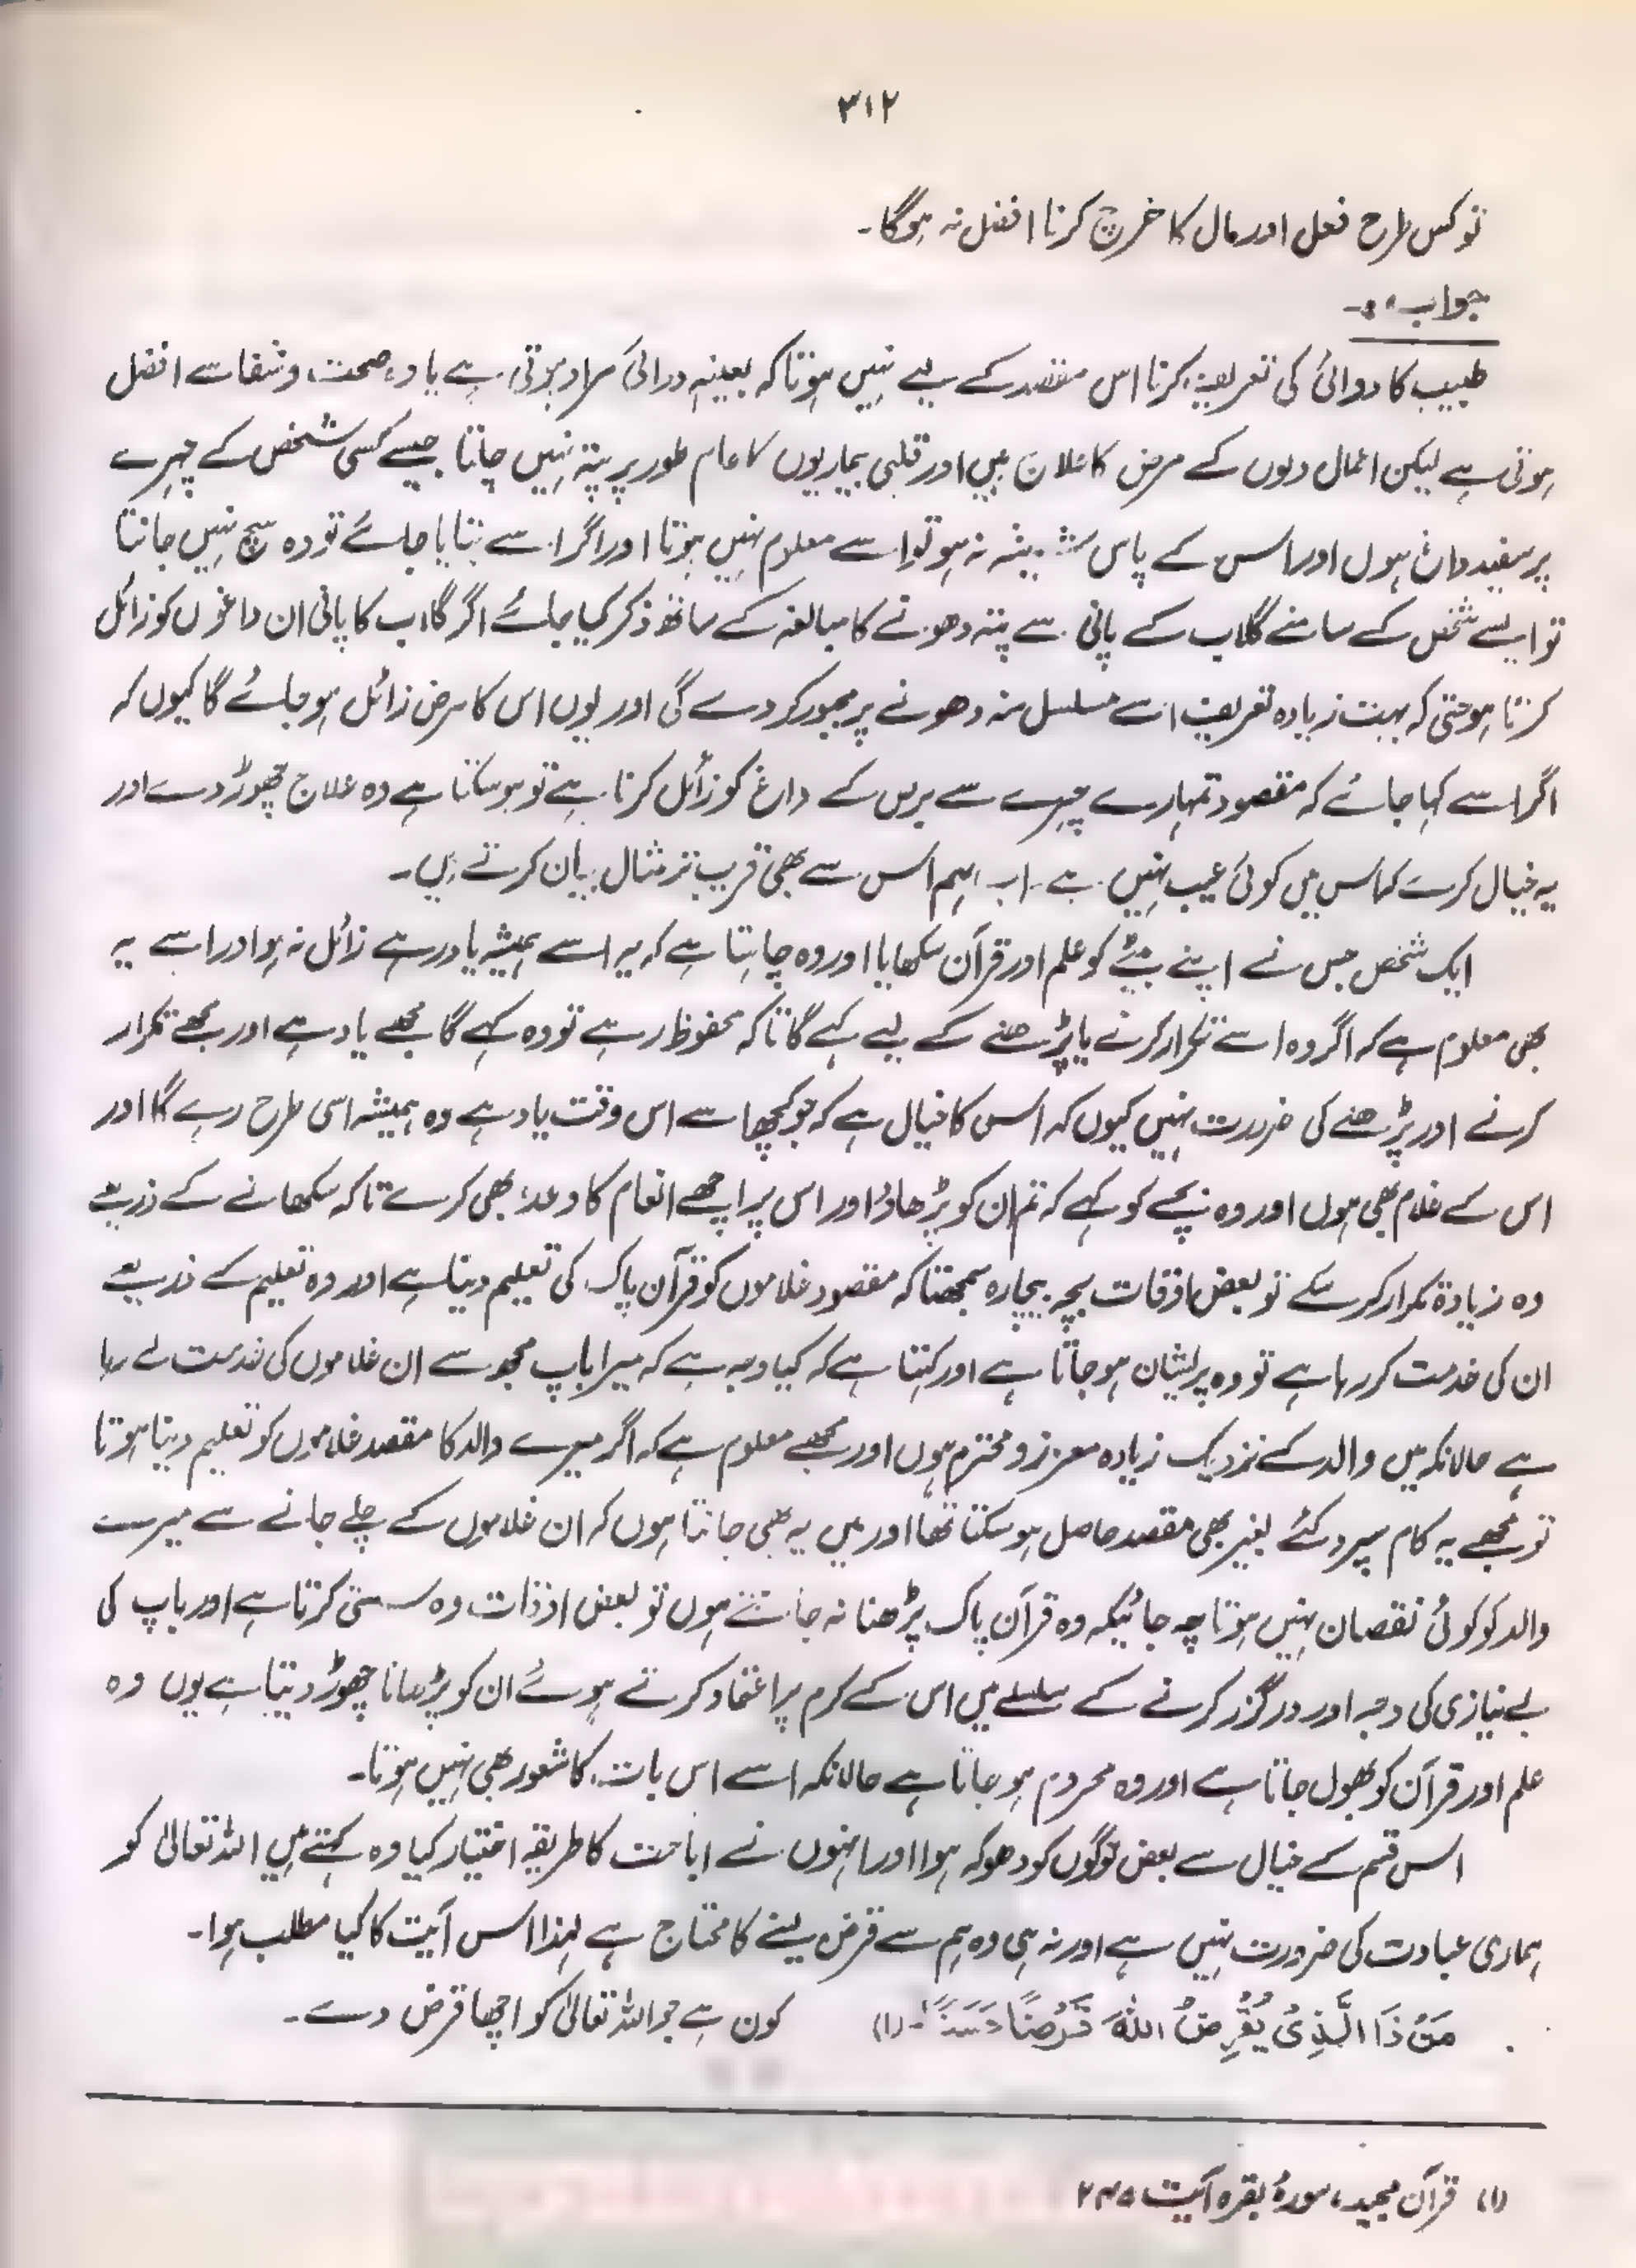 ۳۱۲
تو کس طرح فعل اور مال کا خرچ کرنا افضل نہ ہوگا۔
جواب:۔
طبیب کا دوائی کی تعریف کرنا اس مقصد کے لیے نہیں ہوتا کہ بعینہٖ دوائی مراد ہوتی ہے یا وہ صحت و شفا سے افضل
ہوتی ہے لیکن اعمال دلوں کے مرض کا علاج ہیں اور قلبی بیماریوں کا عام طور پر پتہ نہیں چلتا جیسے کسی شخص کے چہرے
پر سفید داغ ہوں اور اس کے پاس شیشہ نہ ہو تو اسے معلوم نہیں ہوتا اور اگر اسے بتایا جائے تو وہ سچ نہیں جانتا
تو ایسے شخص کے سامنے گلاب کے پانی سے منہ دھونے کا مبالغہ کے ساتھ ذکر کیا جائے اگر گلاب کا پانی ان داغوں کو زائل
کرتا ہو حتیٰ کہ بہت زیادہ تعریف اسے مسلسل منہ دھونے پر مجبور کر دے گی اور یوں اس کا مرض زائل ہو جائے گا کیوں کہ
اگر اسے کہا جائے کہ مقصود تمہارے چہرے سے برص کے داغ کو زائل کرنا ہے تو ہو سکتا ہے وہ علاج چھوڑ دے اور
یہ خیال کرے کہ اس میں کوئی عیب نہیں ہے۔ اب ہم اس سے بھی قریب تر مثال بیان کرتے ہیں۔
ایک شخص جس نے اپنے بیٹے کو علم اور قرآن سکھایا اور وہ چاہتا ہے کہ یہ اسے ہمیشہ یاد رہے زائل نہ ہو اور اسے یہ
بھی معلوم ہے کہ اگر وہ اسے تکرار کرنے یا پڑھنے کے لیے کہے گا تاکہ محفوظ رہے تو وہ کہے گا مجھے یاد ہے اور مجھے تکرار
کرنے اور پڑھنے کی ضرورت نہیں کیوں کہ اس کا خیال ہے کہ جو کچھ اسے اس وقت یاد ہے وہ ہمیشہ اسی طرح رہے گا اور
اس کے غلام بھی ہوں اور وہ بچے کو کہے کہ تم ان کو پڑھاؤ اور اس پر اچھے انعام کا وعدہ بھی کرے تاکہ سکھانے کے ذریعے
وہ زیادہ تکرار کر سکے تو بعض اوقات بچہ بیچارہ سمجھتا کہ مقصود غلاموں کو قرآن پاک کی تعلیم دینا ہے اور وہ تعلیم کے ذریعے
ان کی خدمت کر رہا ہے تو وہ پریشان ہو جاتا ہے اور کہتا ہے کہ کیا وجہ ہے کہ میرا باپ مجھ سے ان غلاموں کی خدمت لے رہا
ہے حالانکہ میں والد کے نزدیک زیادہ معزز و محترم ہوں اور مجھے معلوم ہے کہ اگر میرے والد کا مقصد غلاموں کو تعلیم دینا ہوتا
تو مجھے یہ کام سپرد کئے بغیر بھی مقصد حاصل ہو سکتا تھا اور میں یہ بھی جانتا ہوں کہ ان غلاموں کے چلے جانے سے میرے
والد کو کوئی نقصان نہیں ہوتا چہ جائیکہ وہ قرآن پاک پڑھنا نہ جانتے ہوں تو بعض اوقات وہ سستی کرتا ہے اور باپ کی
بے نیازی کی وجہ اور درگزر کرنے کے سلسلے میں اس کے کرم پر اعتماد کرتے ہوئے ان کو پڑھانا چھوڑ دیتا ہے یوں وہ
علم اور قرآن کو بھول جاتا ہے اور وہ محروم ہو جاتا ہے حالانکہ اسے اس بات کا شعور بھی نہیں ہوتا۔
اس قسم کے خیال سے بعض لوگوں کو دھوکہ ہوا اور انہوں نے اباحت کا طریقہ اختیار کیا وہ کہتے ہیں اللہ تعالیٰ کو
ہماری عبادت کی ضرورت نہیں ہے اور نہ ہی وہ ہم سے قرض لینے کا محتاج ہے لہذا اس آیت کا کیا مطلب ہوا۔
مَنْ ذَا الَّذِیْ یُقْرِضُ اللّٰہَ قَرْضًا حَسَنًا۔ (۱) کون ہے جو اللہ تعالیٰ کو اچھا قرض دے۔
(۱) قرآن مجید، سورۂ بقرہ آیت ۲۴۵